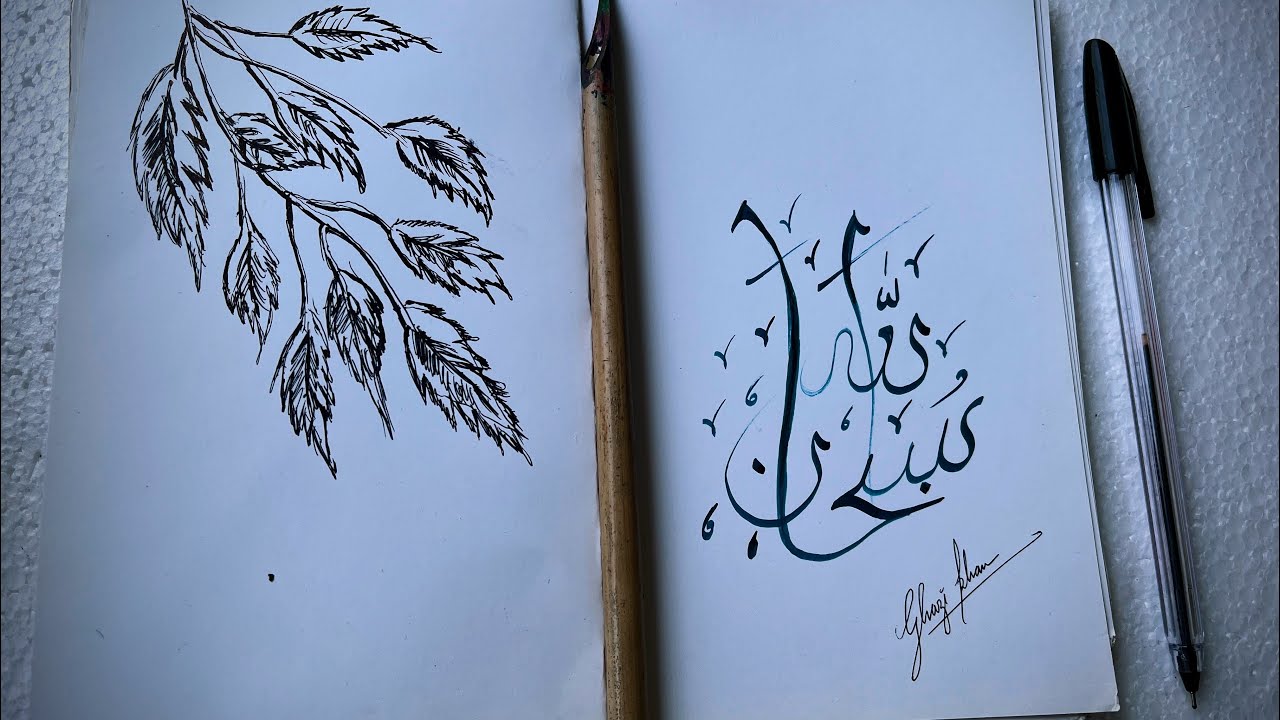 سُبحان اللّٰه
Ghazi khan